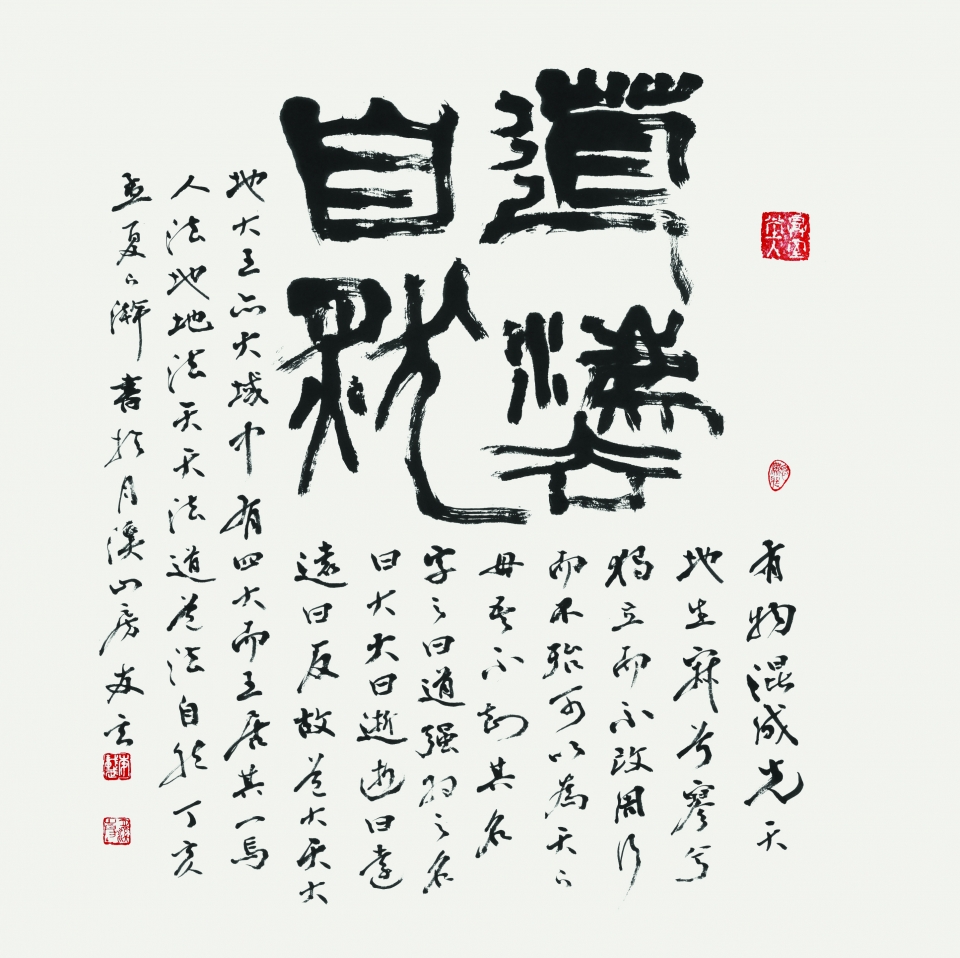 道灋
自然
有物混成先天
地生寂兮寥兮
獨立而不改周行
而不殆可以為天下
母吾不知其名
字之曰道强为之名
曰大大曰逝逝曰遠
遠曰反故道大天大
地大王亦大域中有四大而王居其一焉
人法地地法天天法道道法自然丁亥
孟夏下澣書於月溪山房友